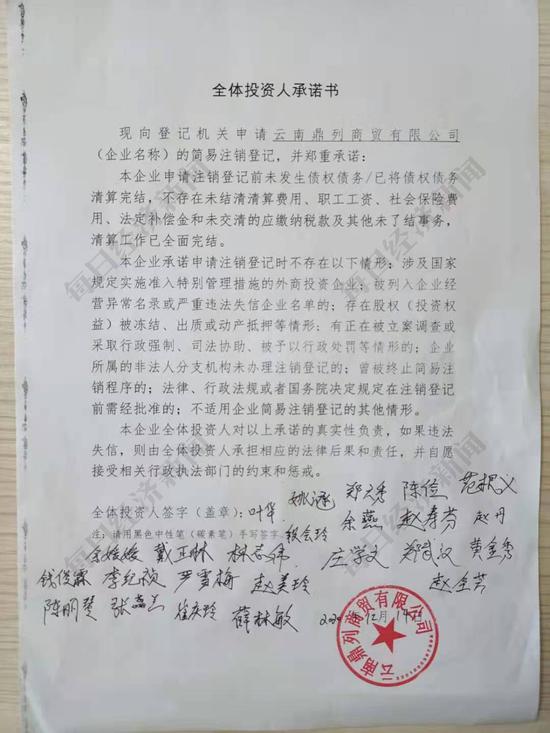 全体投资人承诺书
现向登记机关申请云南鼎列商贸有限公司
（企业名称）的简易注销登记，并郑重承诺：
本企业申请注销登记前未发生债权债务/已将债权债务
清算完结，不存在未结清清算费用、职工工资、社会保险费
用、法定补偿金和未交清的应缴纳税款及其他未了结事务，
清算工作已全面完结。
本企业承诺申请注销登记时不存在以下情形：涉及国家
规定实施准入特别管理措施的外商投资企业；被列入企业经
营异常名录或严重违法失信企业名单的；存在股权（投资权
益）被冻结、出质或动产抵押等情形；有正在被立案调查或
采取行政强制、司法协助、被予以行政处罚等情形的；企业
所属的非法人分支机构未办理注销登记的；曾被终止简易注
销程序的；法律、行政法规或者国务院决定规定在注销登记
前需经批准的；不适用企业简易注销登记的其他情形。
本企业全体投资人对以上承诺的真实性负责，如果违法
失信，则由全体投资人承担相应的法律后果和责任，并自愿
接受相关行政执法部门的约束和惩戒。
全体投资人签字（盖章）：叶华 姚涵 陈俭
注：请用黑色中性笔（碳素笔）手写签字 余燕 赵寿芬 赵丹
戴正琳 庄学文 黄金秀
严雪梅 赵美玲
陈丽琴 崔庆玲 薛林敏 12月14日
云南鼎列商贸有限公司
每日经济新闻
每日经济新闻
每日经济新闻
每日经济新闻